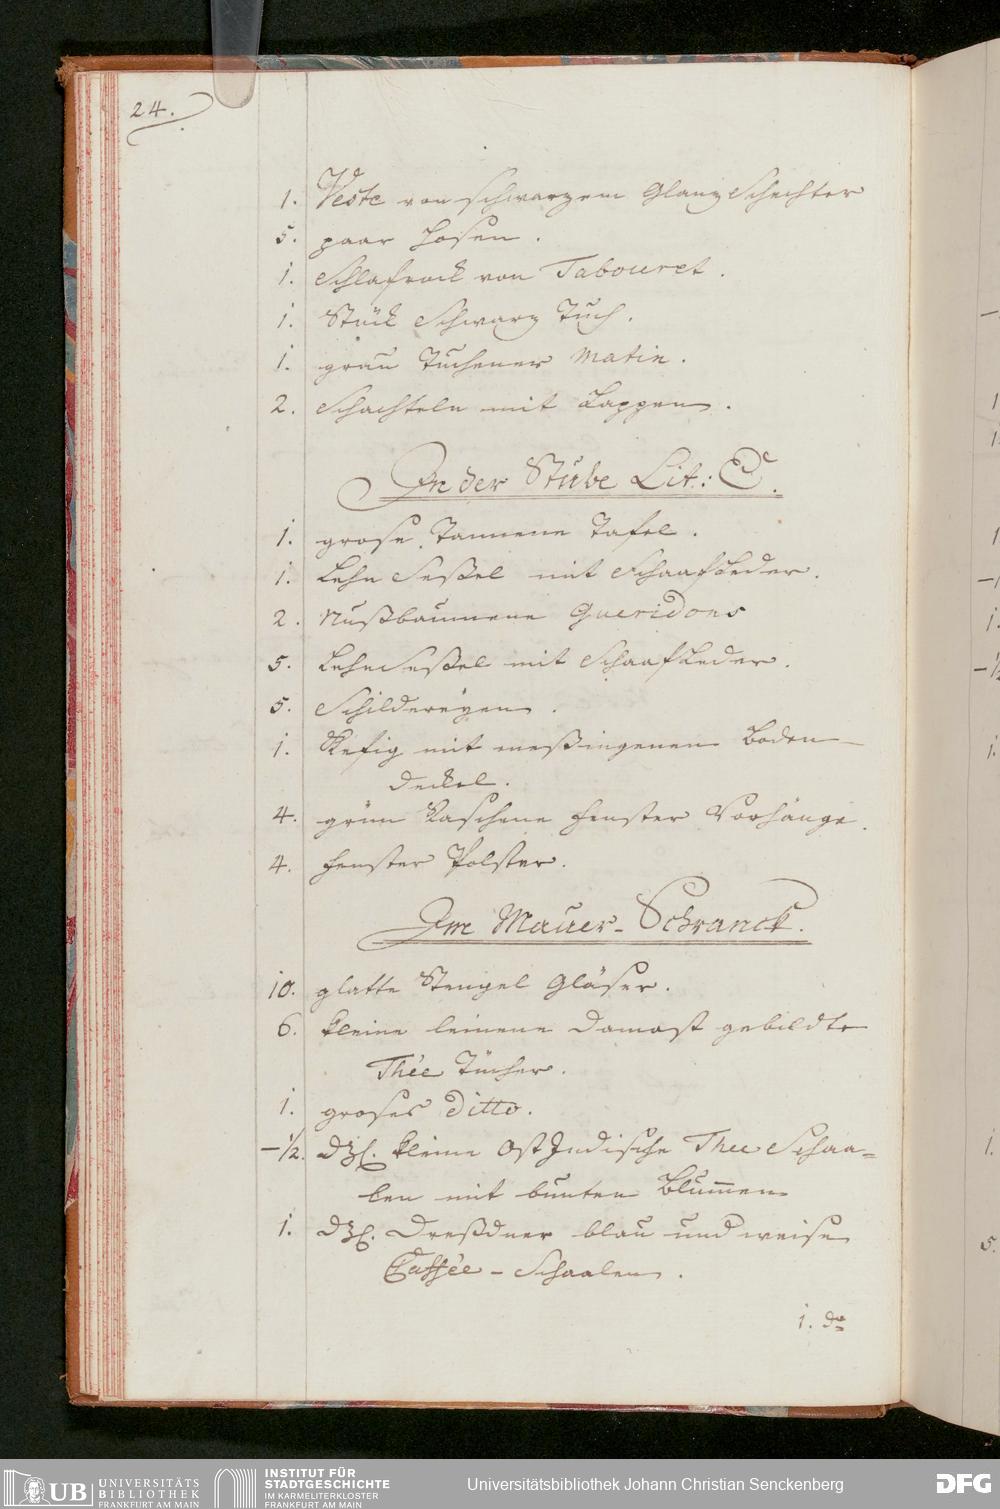 24.
1. Veste von schwarzem Glanz Schechter
5. paar Hosen.
1. Schlafrock von Tabouret.
1. Stück Schwarz Tuch.
1. grau Tuchener Matin.
2. Schachteln mit Lappen.
In der Stube Lit: C.
1. grose Tannene Tafel.
1. Lehn Seßel mit Schaafleder.
2. Nußbaumene Gueridons
5. Lehn Seßel mit Schaafleder.
5. Schildereyen.
1. Kefig mit meßingenen Boden
deckel.
4. grün Raschene Fenster Vorhänge.
4. Fenster Polster.
Im Mauer-Schranck.
10. glatte Stengel Gläser.
6. kleine leinene Damast gebildte
Thée Tücher.
1. groses ditto.
-½. Dzl. kleine OstIndische Thee Schaa=
len mit bunten Blumen
1. Dzl. Dreßdner blau und weise
Caffée-Schaalen.
1. do
UB UNIVERSITÄTS
BIBLIOTHEK
FRANKFURT AM MAIN
INSTITUT FÜR
STADTGESCHICHTE
IM KARMELITERKLOSTER
FRANKFURT AM MAIN
Universitätsbibliothek Johann Christian Senckenberg
DFG